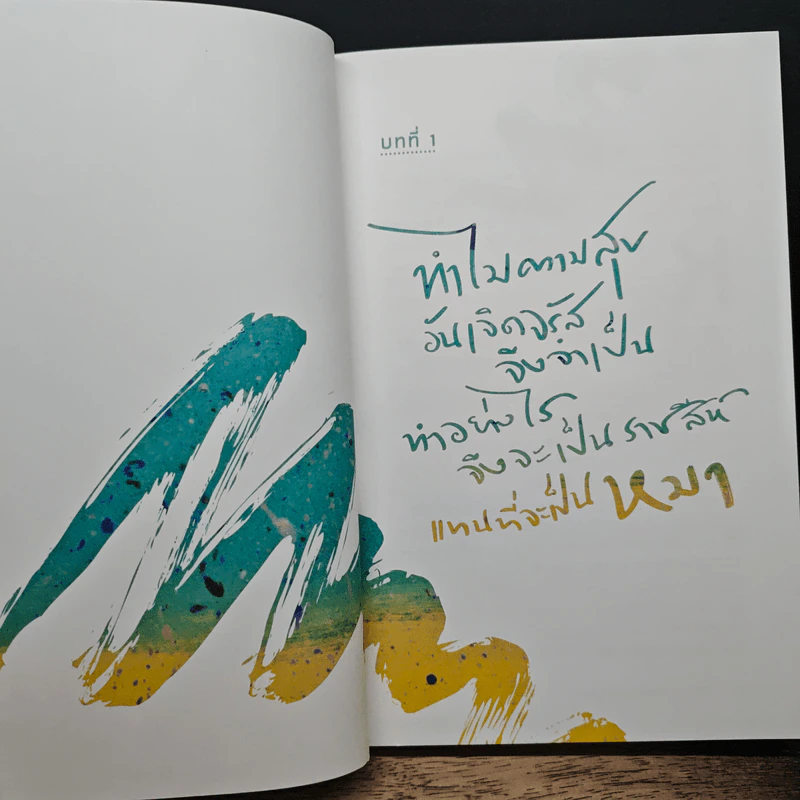 บทที่ 1
ทำไมความสุข
อันเจิดจรัส
จึงจำเป็น
ทำอย่างไร
จึงจะเป็นราชสีห์
แทนที่จะเป็นหมา